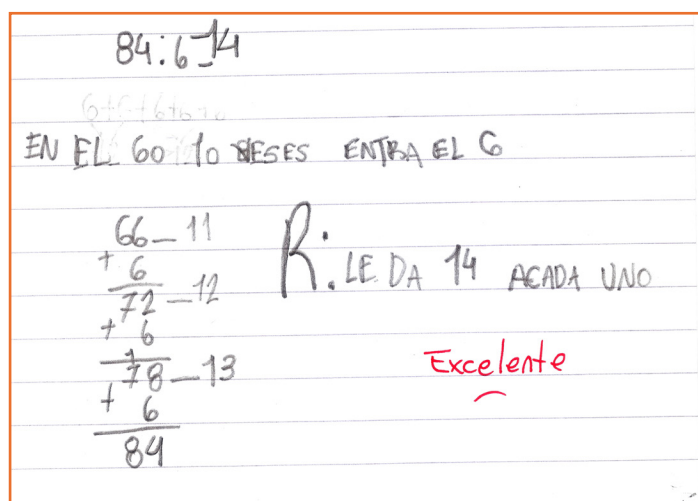 84:6=14
6+6+6+6+0
EN EL 60 10 BESES ENTRA EL 6
66-11
+ 6
72-12
+ 6
78-13
+ 6
84
R: LE DA 14 ACADA UNO
Excelente